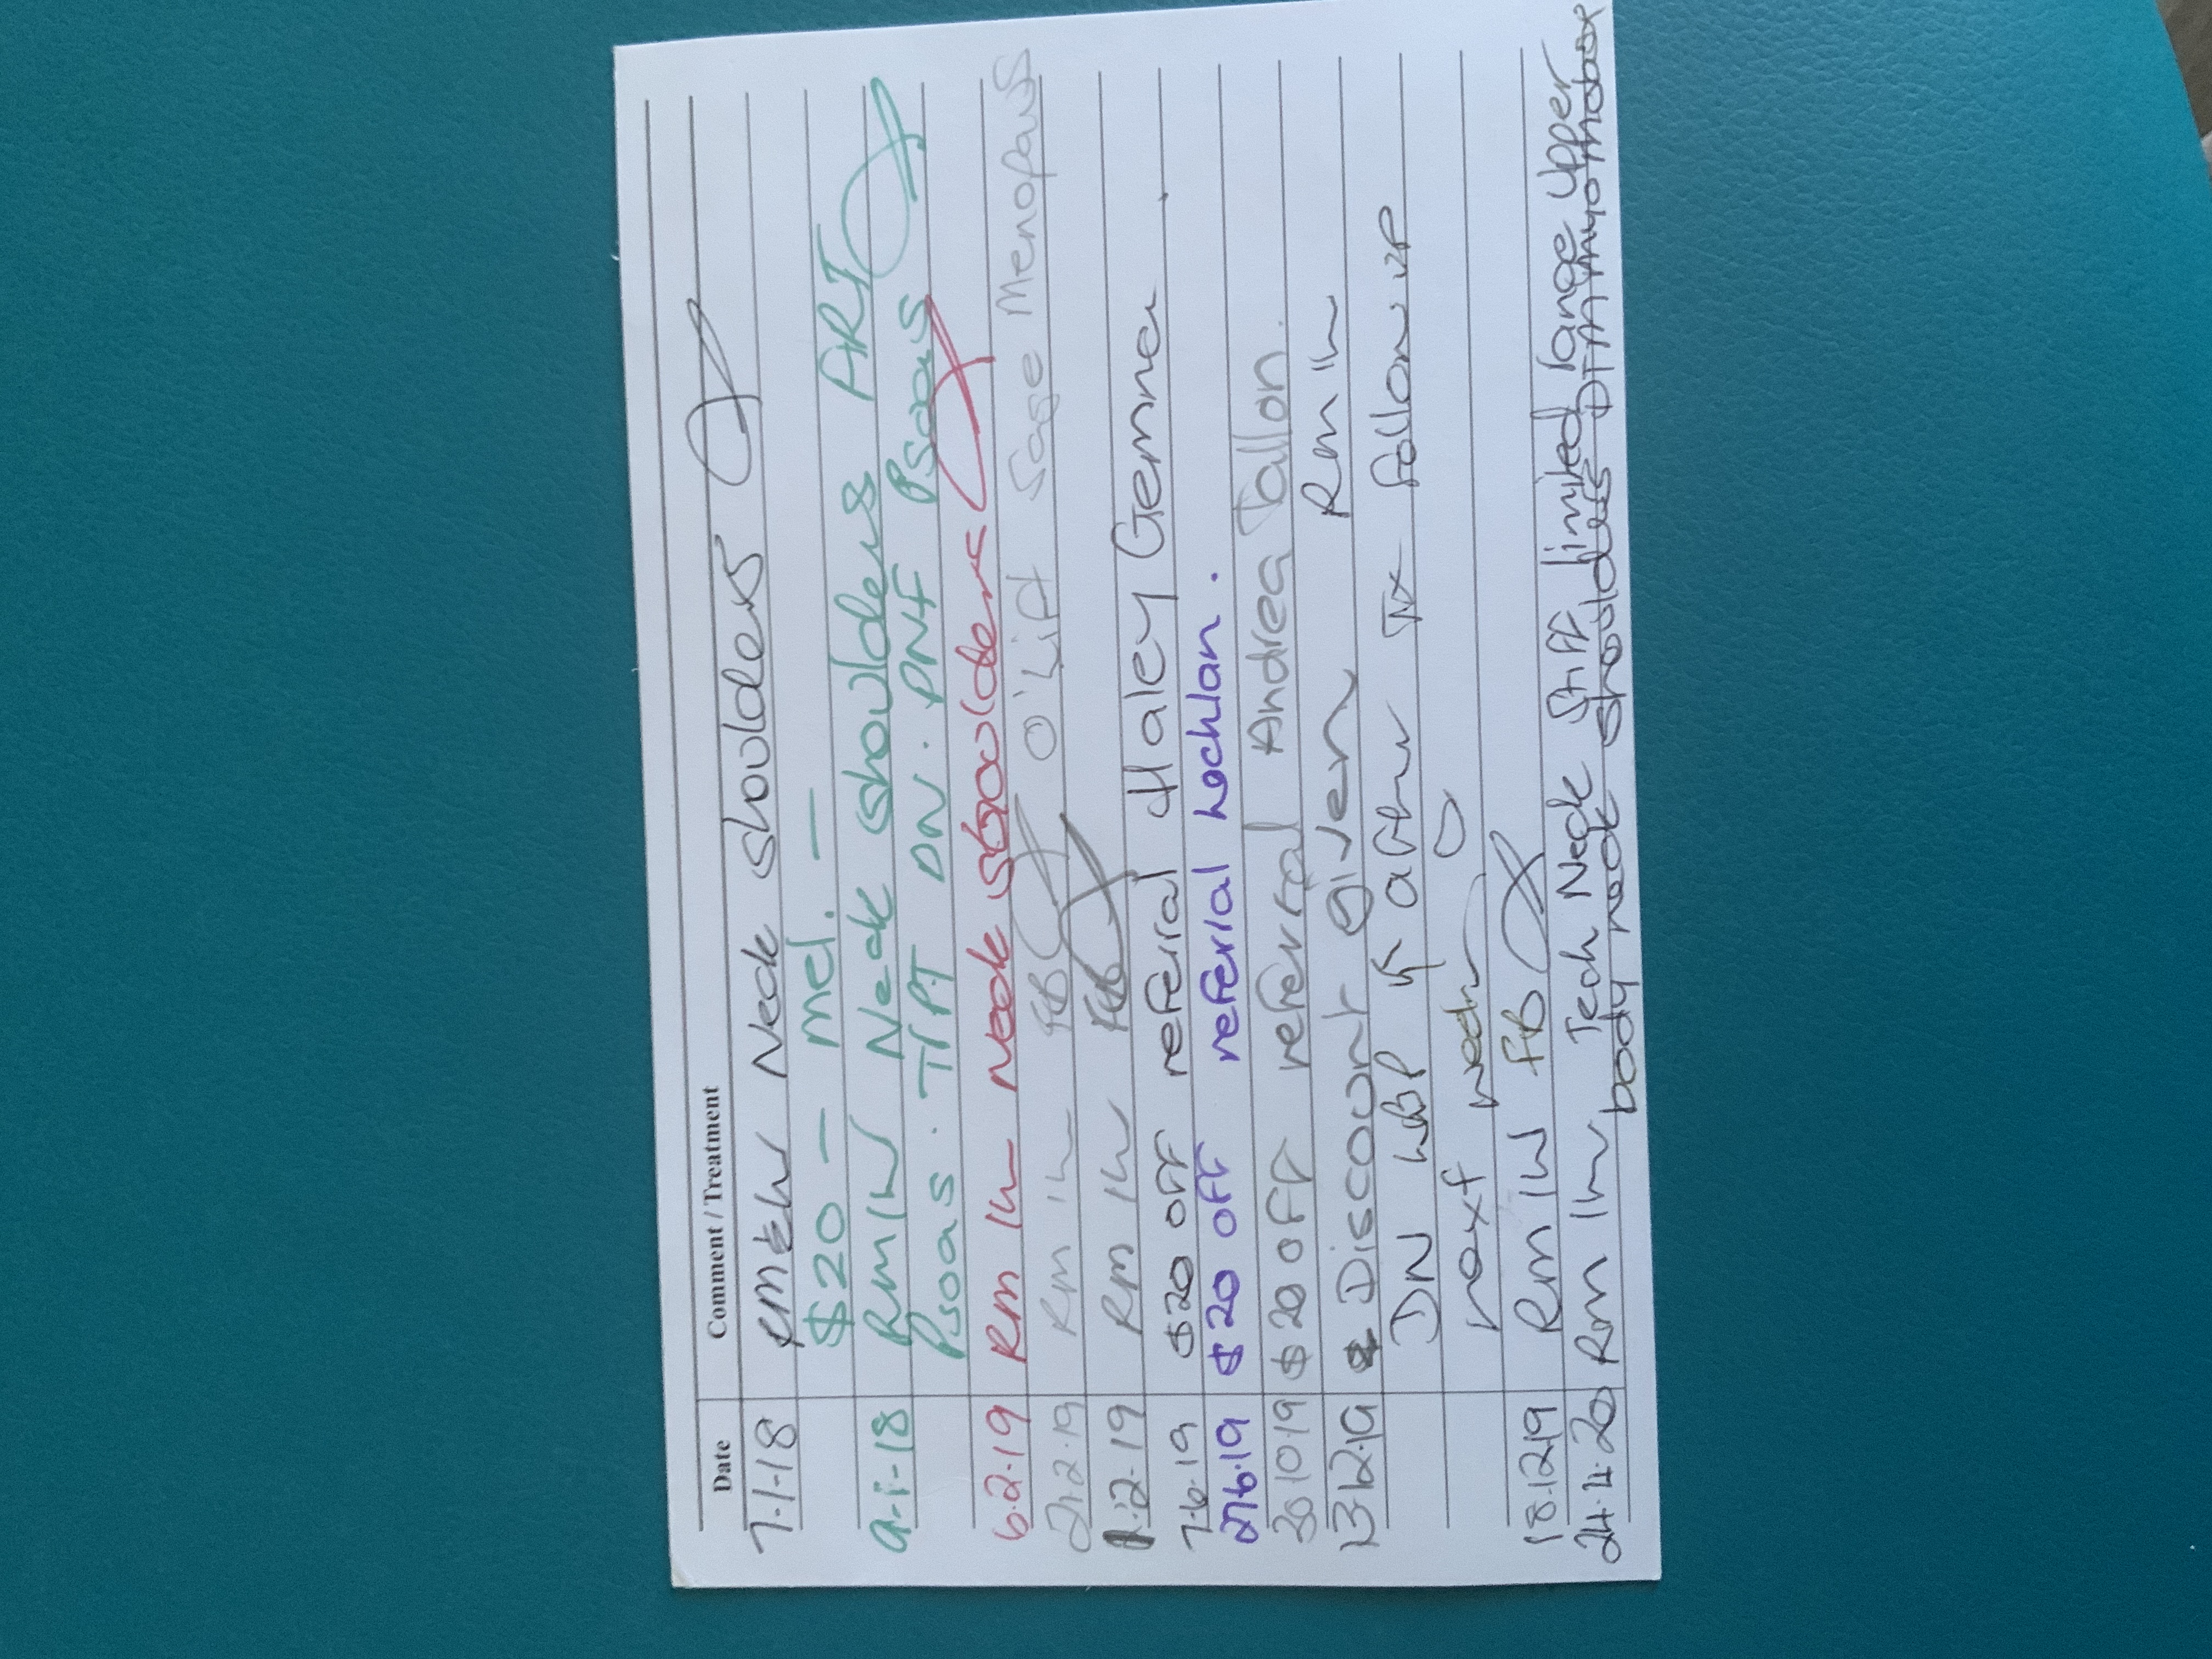 Date Comment / Treatment
7-1-18 Neck Shoulders
$20 — Mel. —
9-1-18 Rm 1hr Neck Shoulders ART
Psoas. TPT DN. PNF Psoas
6.2.19 Rm 1hr Neck shoulders
21.2.19 Rm 1hr FB O'Lift Sage Menopaus
.2.19 Rm 1hr FB
7.6.19 $20 OFF referral Haley Gemma.
27.6.19 $20 OFF referral Lochlan.
30.10.19 $20 OFF referral Andrea Tallon.
13.12.19 Discount given Rm 1hr
DN after Tx followup
next
18.12.19 Rm 1hr FB
24.4.20 Rm 1hr Tech Neck Stiff limited range upper
body neck shoulders DTM